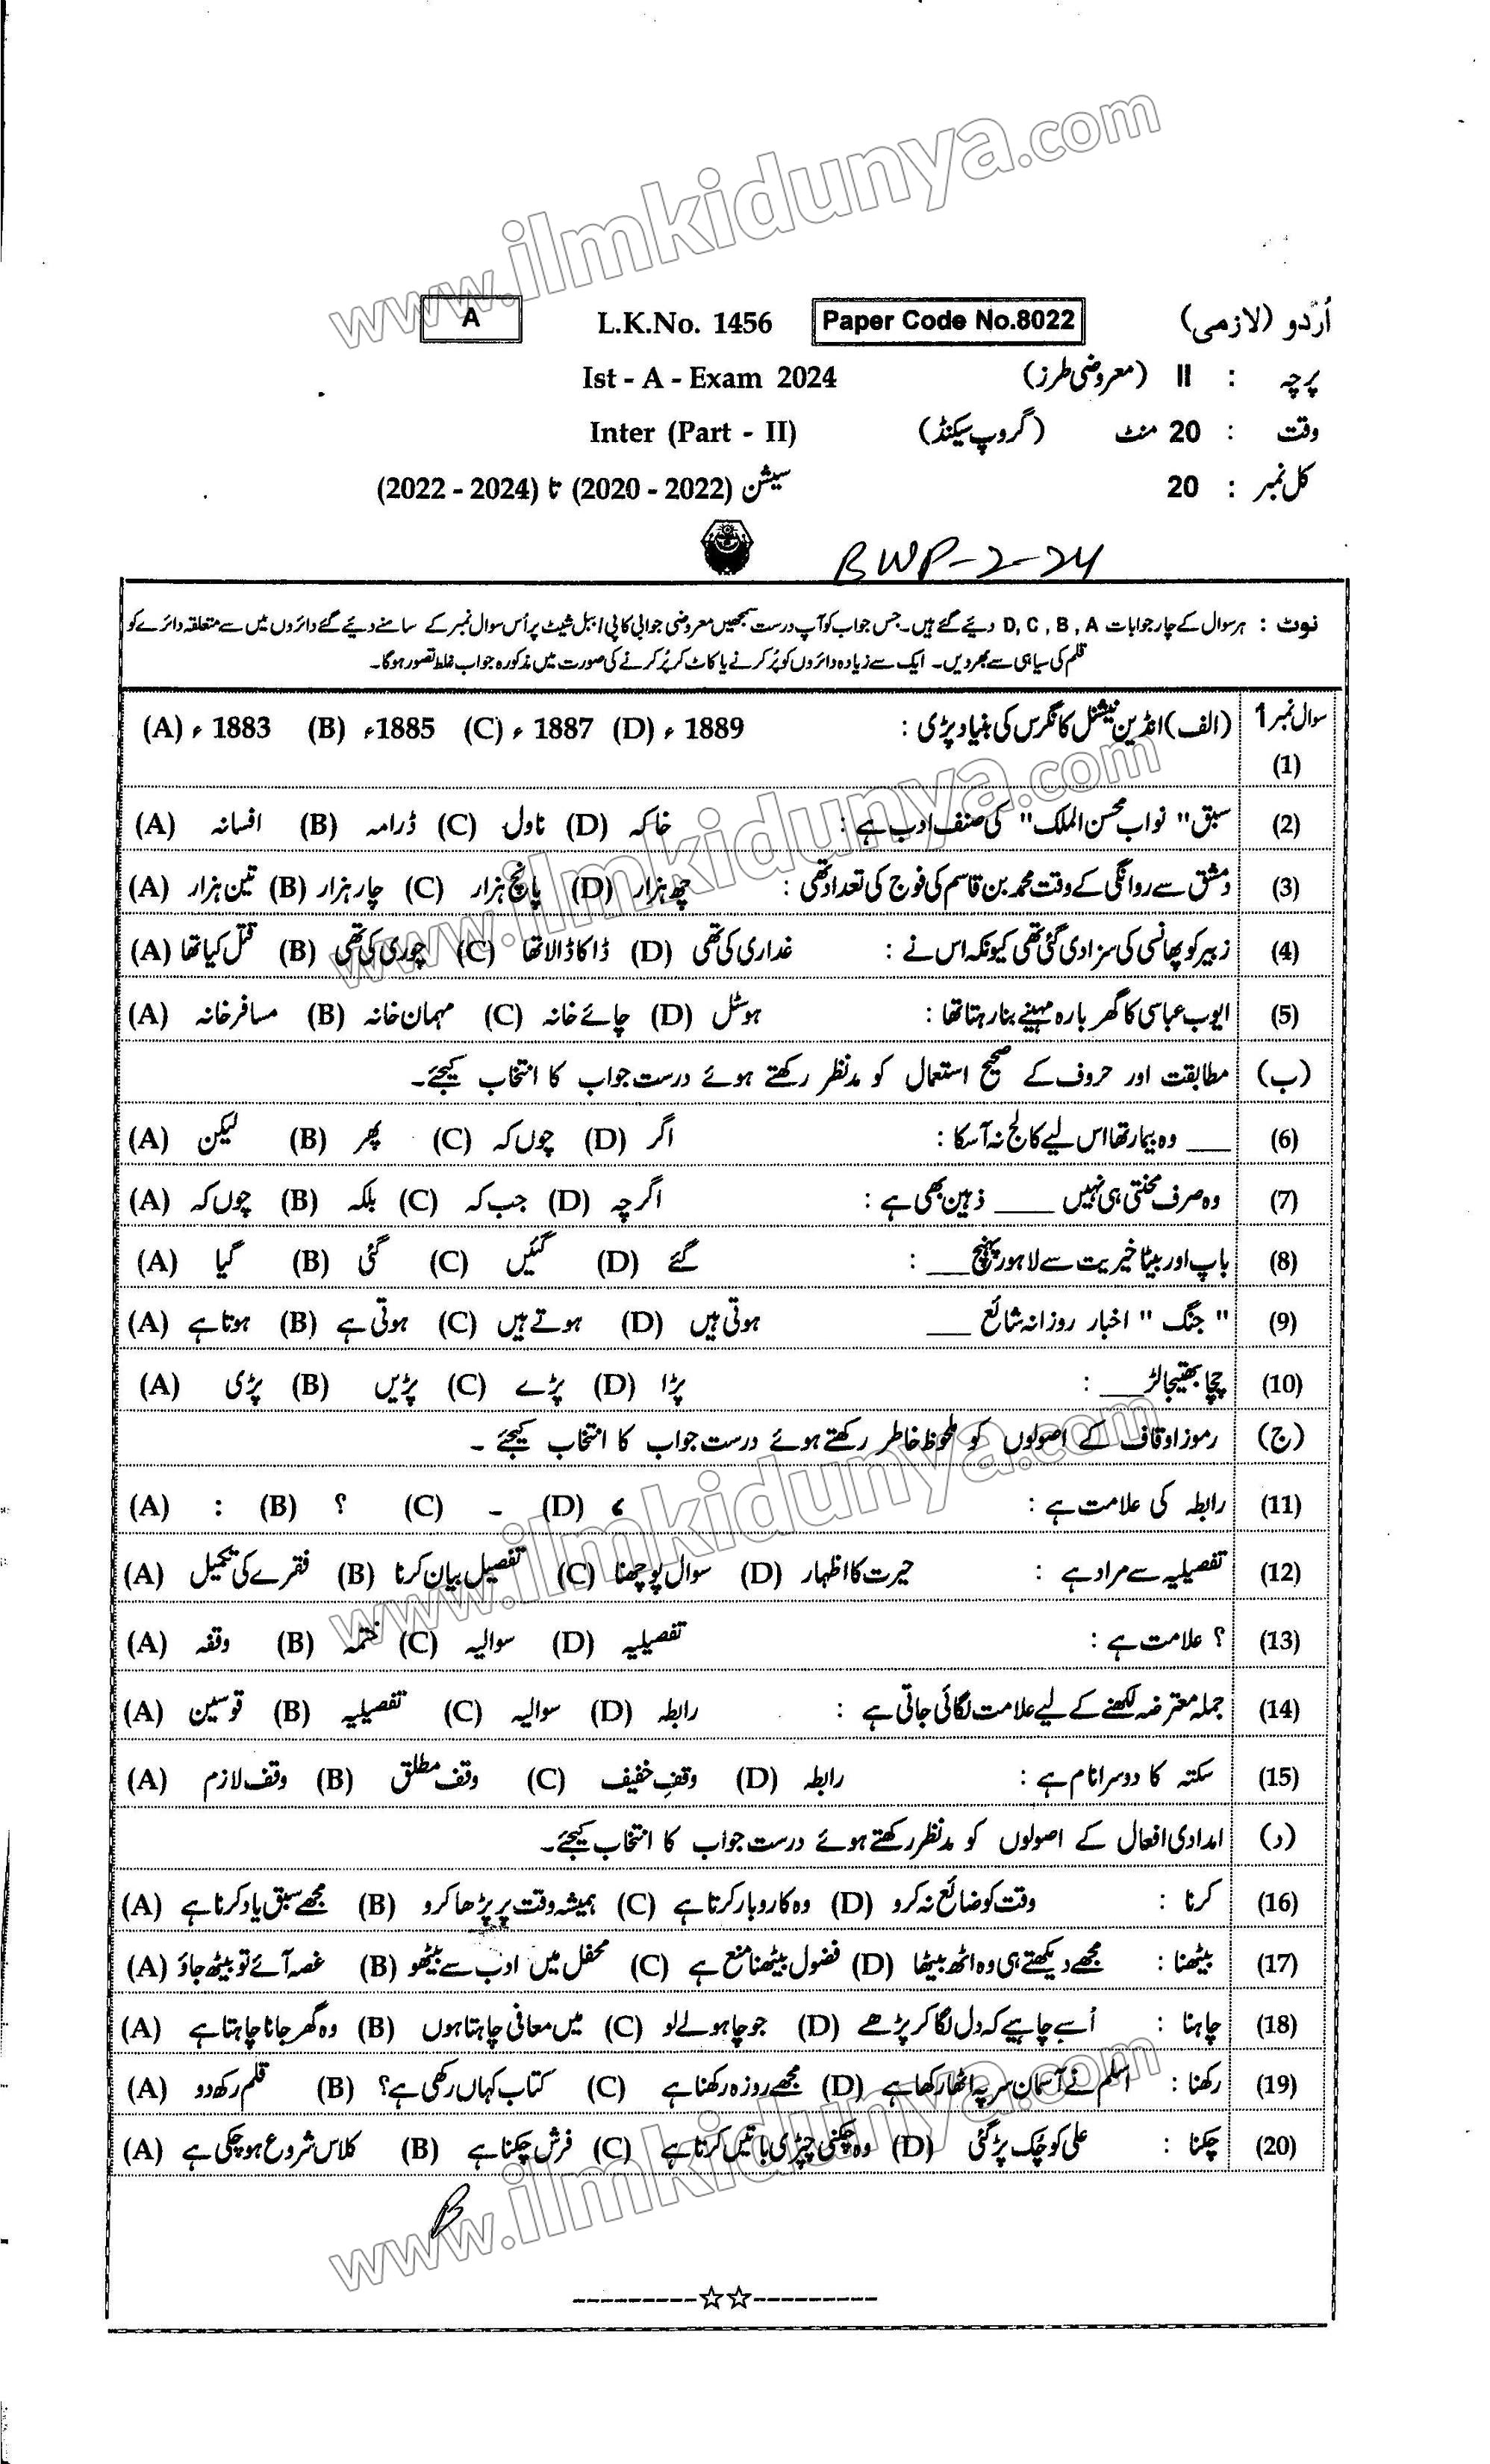 www.ilmkidunya.com
اُردو (لازمی) Paper Code No.8022 L.K.No. 1456 A
پرچہ : II (معروضی طرز) Ist - A - Exam 2024
وقت : 20 منٹ (گروپ سیکنڈ) Inter (Part - II)
کل نمبر : 20 سیشن (2020 - 2022) تا (2022 - 2024)
BWP-2-24
نوٹ : ہر سوال کے چار جوابات D, C , B , A دیئے گئے ہیں۔ جس جواب کو آپ درست سمجھیں معروضی جوابی کاپی / ببل شیٹ پر اُس سوال نمبر کے سامنے دیئے گئے دائروں میں سے متعلقہ دائرے کو
قلم کی سیاہی سے بھر دیں۔ ایک سے زیادہ دائروں کو پُر کرنے یا کاٹ کر پُر کرنے کی صورت میں مذکورہ جواب غلط تصور ہوگا۔
سوال نمبر 1 (الف) انڈین نیشنل کانگرس کی بنیاد پڑی : (A) 1883ء (B) 1885ء (C) 1887ء (D) 1889ء
(1)
(2) سبق " نواب محسن الملک" کی صنف ادب ہے : (A) افسانہ (B) ڈرامہ (C) ناول (D) خاکہ
(3) دمشق سے روانگی کے وقت محمد بن قاسم کی فوج کی تعداد تھی : (A) تین ہزار (B) چار ہزار (C) پانچ ہزار (D) چھ ہزار
(4) زبیر کو پھانسی کی سزا دی گئی تھی کیونکہ اس نے : (A) قتل کیا تھا (B) چوری کی تھی (C) ڈاکا ڈالا تھا (D) غداری کی تھی
(5) ایوب عباسی کا گھر بارہ مہینے بنا رہتا تھا : (A) مسافر خانہ (B) مہمان خانہ (C) چائے خانہ (D) ہوٹل
(ب) مطابقت اور حروف کے صحیح استعمال کو مدنظر رکھتے ہوئے درست جواب کا انتخاب کیجئے۔
(6) ____ وہ بیمار تھا اس لیے کالج نہ آسکا : (A) لیکن (B) پھر (C) چوں کہ (D) اگر
(7) وہ صرف محنتی ہی نہیں ____ ذہین بھی ہے : (A) چوں کہ (B) بلکہ (C) جب کہ (D) اگرچہ
(8) باپ اور بیٹا خیریت سے لاہور پہنچ ____ : (A) گیا (B) گئی (C) گئیں (D) گئے
(9) " جنگ " اخبار روزانہ شائع ____ (A) ہوتا ہے (B) ہوتی ہے (C) ہوتے ہیں (D) ہوتی ہیں
(10) چچا بھتیجا لڑ ____ : (A) پڑی (B) پڑیں (C) پڑے (D) پڑا
(ج) رموز اوقاف کے اصولوں کو ملحوظ خاطر رکھتے ہوئے درست جواب کا انتخاب کیجئے ۔
(11) رابطہ کی علامت ہے : (A) : (B) ؟ (C) ۔ (D) ،
(12) تفصیلیہ سے مراد ہے : (A) فقرے کی تکمیل (B) تفصیل بیان کرنا (C) سوال پوچھنا (D) حیرت کا اظہار
(13) ؟ علامت ہے : (A) وقفہ (B) ختمہ (C) سوالیہ (D) تفصیلیہ
(14) جملہ معترضہ لکھنے کے لیے علامت لگائی جاتی ہے : (A) قوسین (B) تفصیلیہ (C) سوالیہ (D) رابطہ
(15) سکتہ کا دوسرا نام ہے : (A) وقف لازم (B) وقف مطلق (C) وقفِ خفیف (D) رابطہ
(د) امدادی افعال کے اصولوں کو مدنظر رکھتے ہوئے درست جواب کا انتخاب کیجئے۔
(16) کرنا : (A) مجھے سبق یاد کرنا ہے (B) ہمیشہ وقت پر پڑھا کرو (C) وہ کاروبار کرتا ہے (D) وقت کو ضائع نہ کرو
(17) بیٹھنا : (A) غصہ آئے تو بیٹھ جاؤ (B) محفل میں ادب سے بیٹھو (C) فضول بیٹھنا منع ہے (D) مجھے دیکھتے ہی وہ اٹھ بیٹھا
(18) چاہنا : (A) وہ گھر جانا چاہتا ہے (B) میں معافی چاہتا ہوں (C) جو چاہو لے لو (D) اُسے چاہیے کہ دل لگا کر پڑھے
(19) رکھنا : (A) قلم رکھ دو (B) کتاب کہاں رکھی ہے؟ (C) مجھے روزہ رکھنا ہے (D) اسلم نے آسمان سر پہ اٹھا رکھا ہے
(20) چکنا : (A) کلاس شروع ہو چکی ہے (B) فرش چکنا ہے (C) وہ چکنی چپڑی باتیں کرتا ہے (D) علی کو چُک پڑ گئی
www.ilmkidunya.com
www.ilmkidunya.com
www.ilmkidunya.com